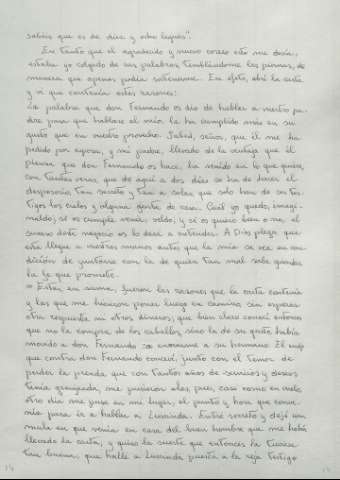 sabéis que es de diez y ocho leguas".
En tanto que el agradecido y nuevo correo esto me decía,
estaba yo colgado de sus palabras, temblándome las piernas, de
manera que apenas podía sostenerme. En efeto, abrí la carta
y vi que contenía estas razones:
La palabra que don Fernando os dio de hablar a vuestro pa-
dre para que hablase al mío, la ha cumplido más en su
gusto que en vuestro provecho. Sabed, señor, que él me ha
pedido por esposa, y mi padre, llevado de la ventaja que él
piensa que don Fernando os hace, ha venido en lo que quiere,
con tantas veras, que de aquí a dos días se ha de hacer el
desposorio, tan secreto y tan a solas, que sólo han de ser tes-
tigos los cielos y alguna gente de casa. Cual yo quedo, imagi-
naldo; si os cumple venir, veldo; y si os quiero bien o no, el
suceso deste negocio os lo dará a entender. A Dios plega que
ésta llegue a vuestras manos antes que la mía se vea en con-
dición de juntarse con la de quien tan mal sabe guardar
la fe que promete.
Estas, en suma, fueron las razones que la carta contenía
y las que me hicieron poner luego en camino, sin esperar
otra respuesta ni otros dineros; que bien claro conocí entonces
que no la compra de los caballos, sino la de su gusto, había
movido a don Fernando a enviarme a su hermano. El enojo
que contra don Fernando concebí, junto con el temor de
perder la prenda que con tantos años de servicios y deseos
tenía granjeada, me pusieron alas, pues, casi como en vuelo,
otro día me puse en mi lugar, al punto y hora que conve-
nía para ir a hablar a Luscinda. Entré secreto y dejé una
mula en que venía en casa del buen hombre que me había
llevado la carta; y quiso la suerte que entonces la tuviese
tan buena, que hallé a Luscinda puesta a la reja, testigo
14